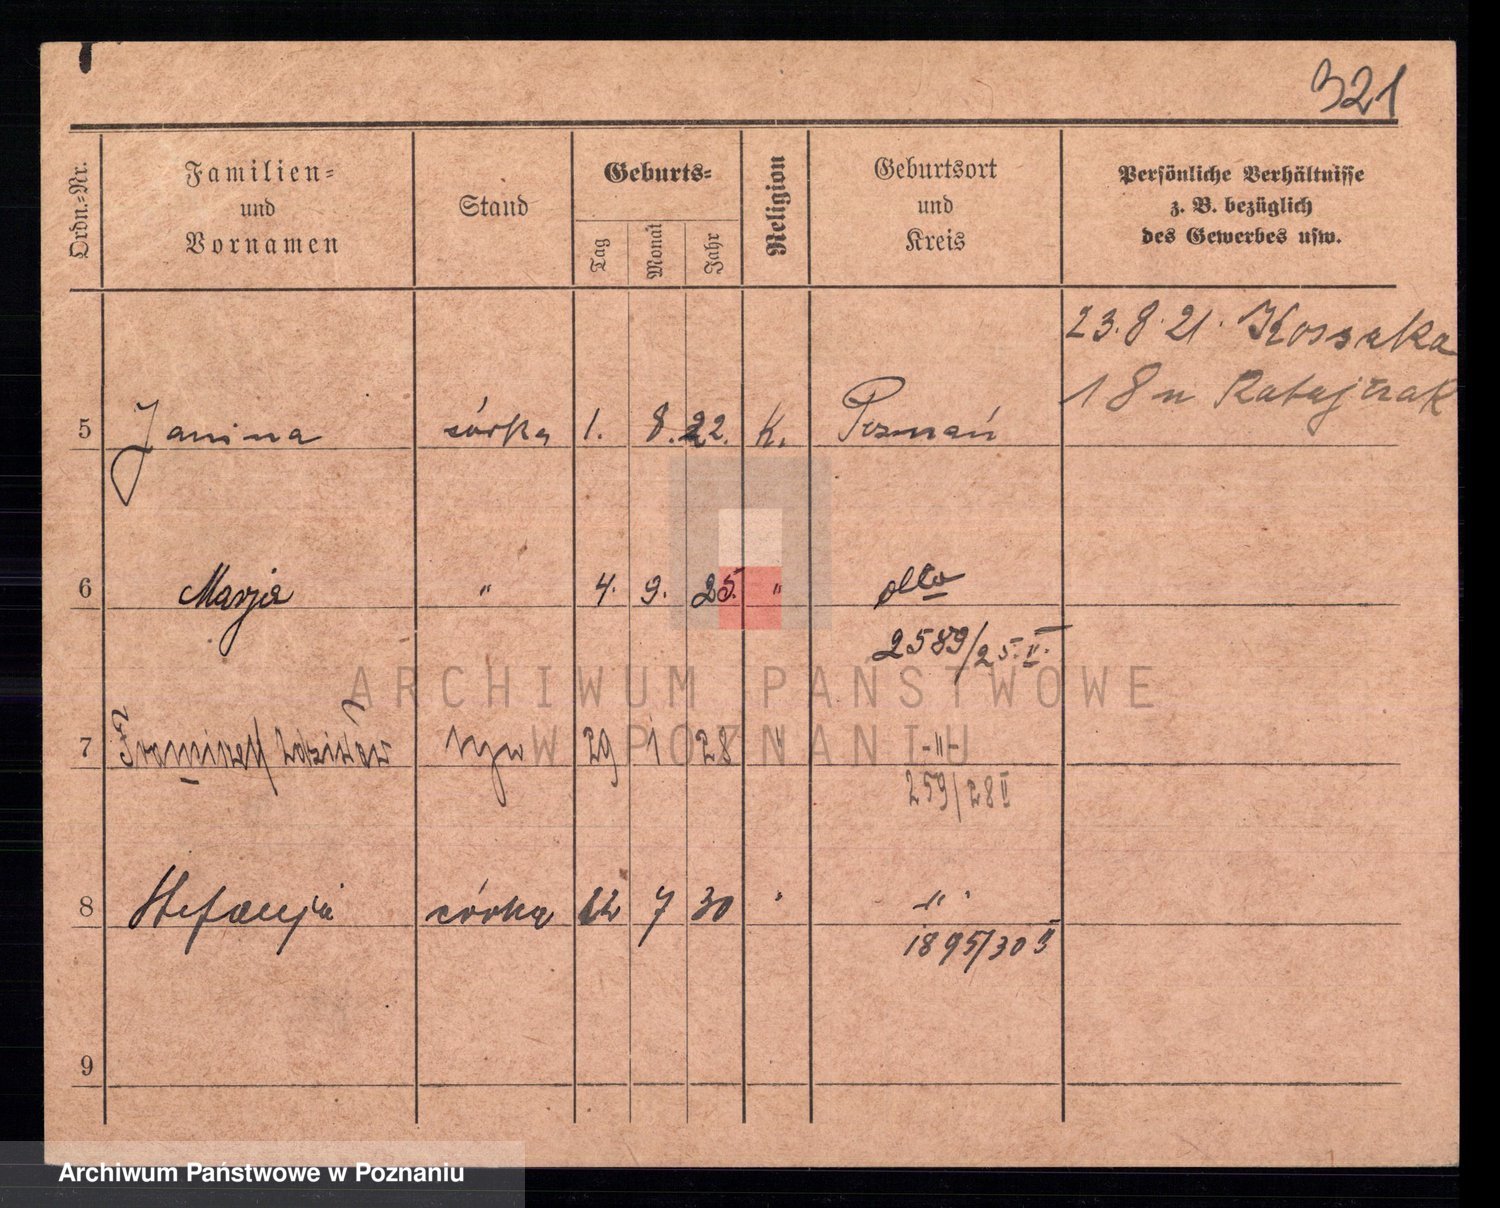 321
Ordn.-Nr.
Familien-
und
Vornamen
Stand
Geburts-
Tag
Monat
Jahr
Religion
Geburtsort
und
Kreis
Persönliche Verhältnisse
z. B. bezüglich
des Gewerbes usw.
23.8.21. Kossaka
18 u Ratajczak
5 Janina córka 1. 8. 22. K. Poznań
6 Marja " 4. 9. 25. " dtto
2589/25.II.
7 Franciszek syn 29 1 28 " -"-
259/28 II
8 Stefanja córka 12 7 30 " -"-
1895/30 II
9
ARCHIWUM PAŃSTWOWE
W POZNANIU
Archiwum Państwowe w Poznaniu